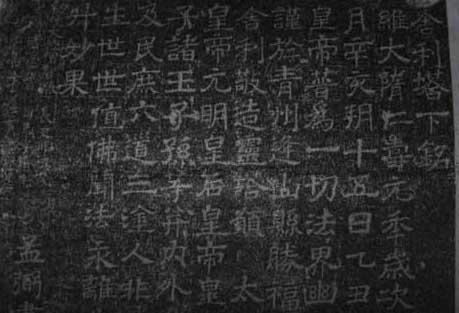 舍利塔下銘
維大隋仁壽元年歲次
月辛亥朔十五日乙丑
皇帝普為一切法界幽
謹於青州逢山縣勝福
舍利敬造靈塔願太
皇帝元明皇后皇帝皇
子諸王子孫等并內外
及民庶六道三途人非
生世世值佛聞法永離
升妙果
孟弼書